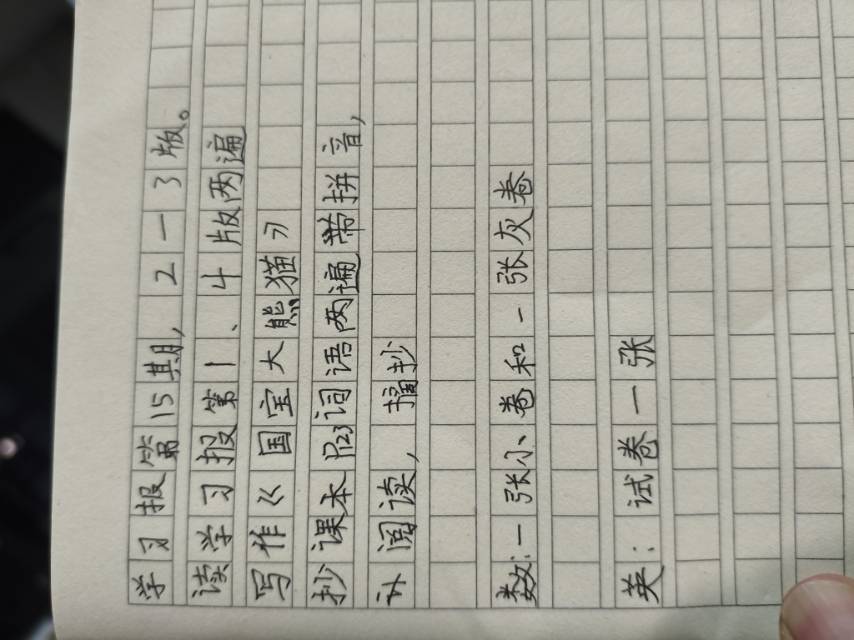 学习报第15期，2一3版。
读学习报第1、4版两遍
写作《国宝大熊猫》
抄课本P123词语两遍带拼音，
阅读，摘抄
数：一张小卷和一张灰卷
英：试卷一张